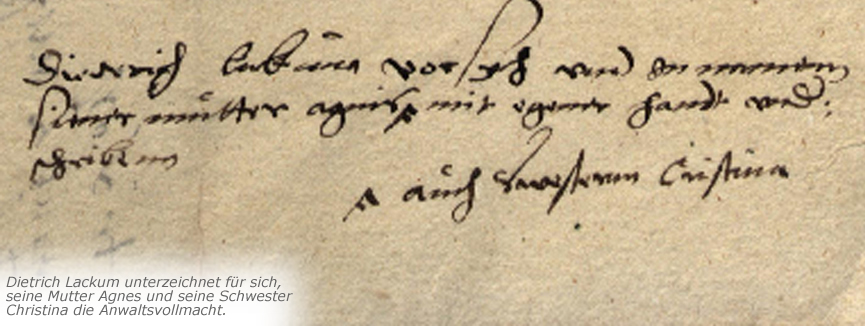 Diederich lakum vor sych und in namen
siener mutter agnis ⁁ mit egener handt und:
schriben
⁁ auch swesterin Cristina
Dietrich Lackum unterzeichnet für sich,
seine Mutter Agnes und seine Schwester
Christina die Anwaltsvollmacht.